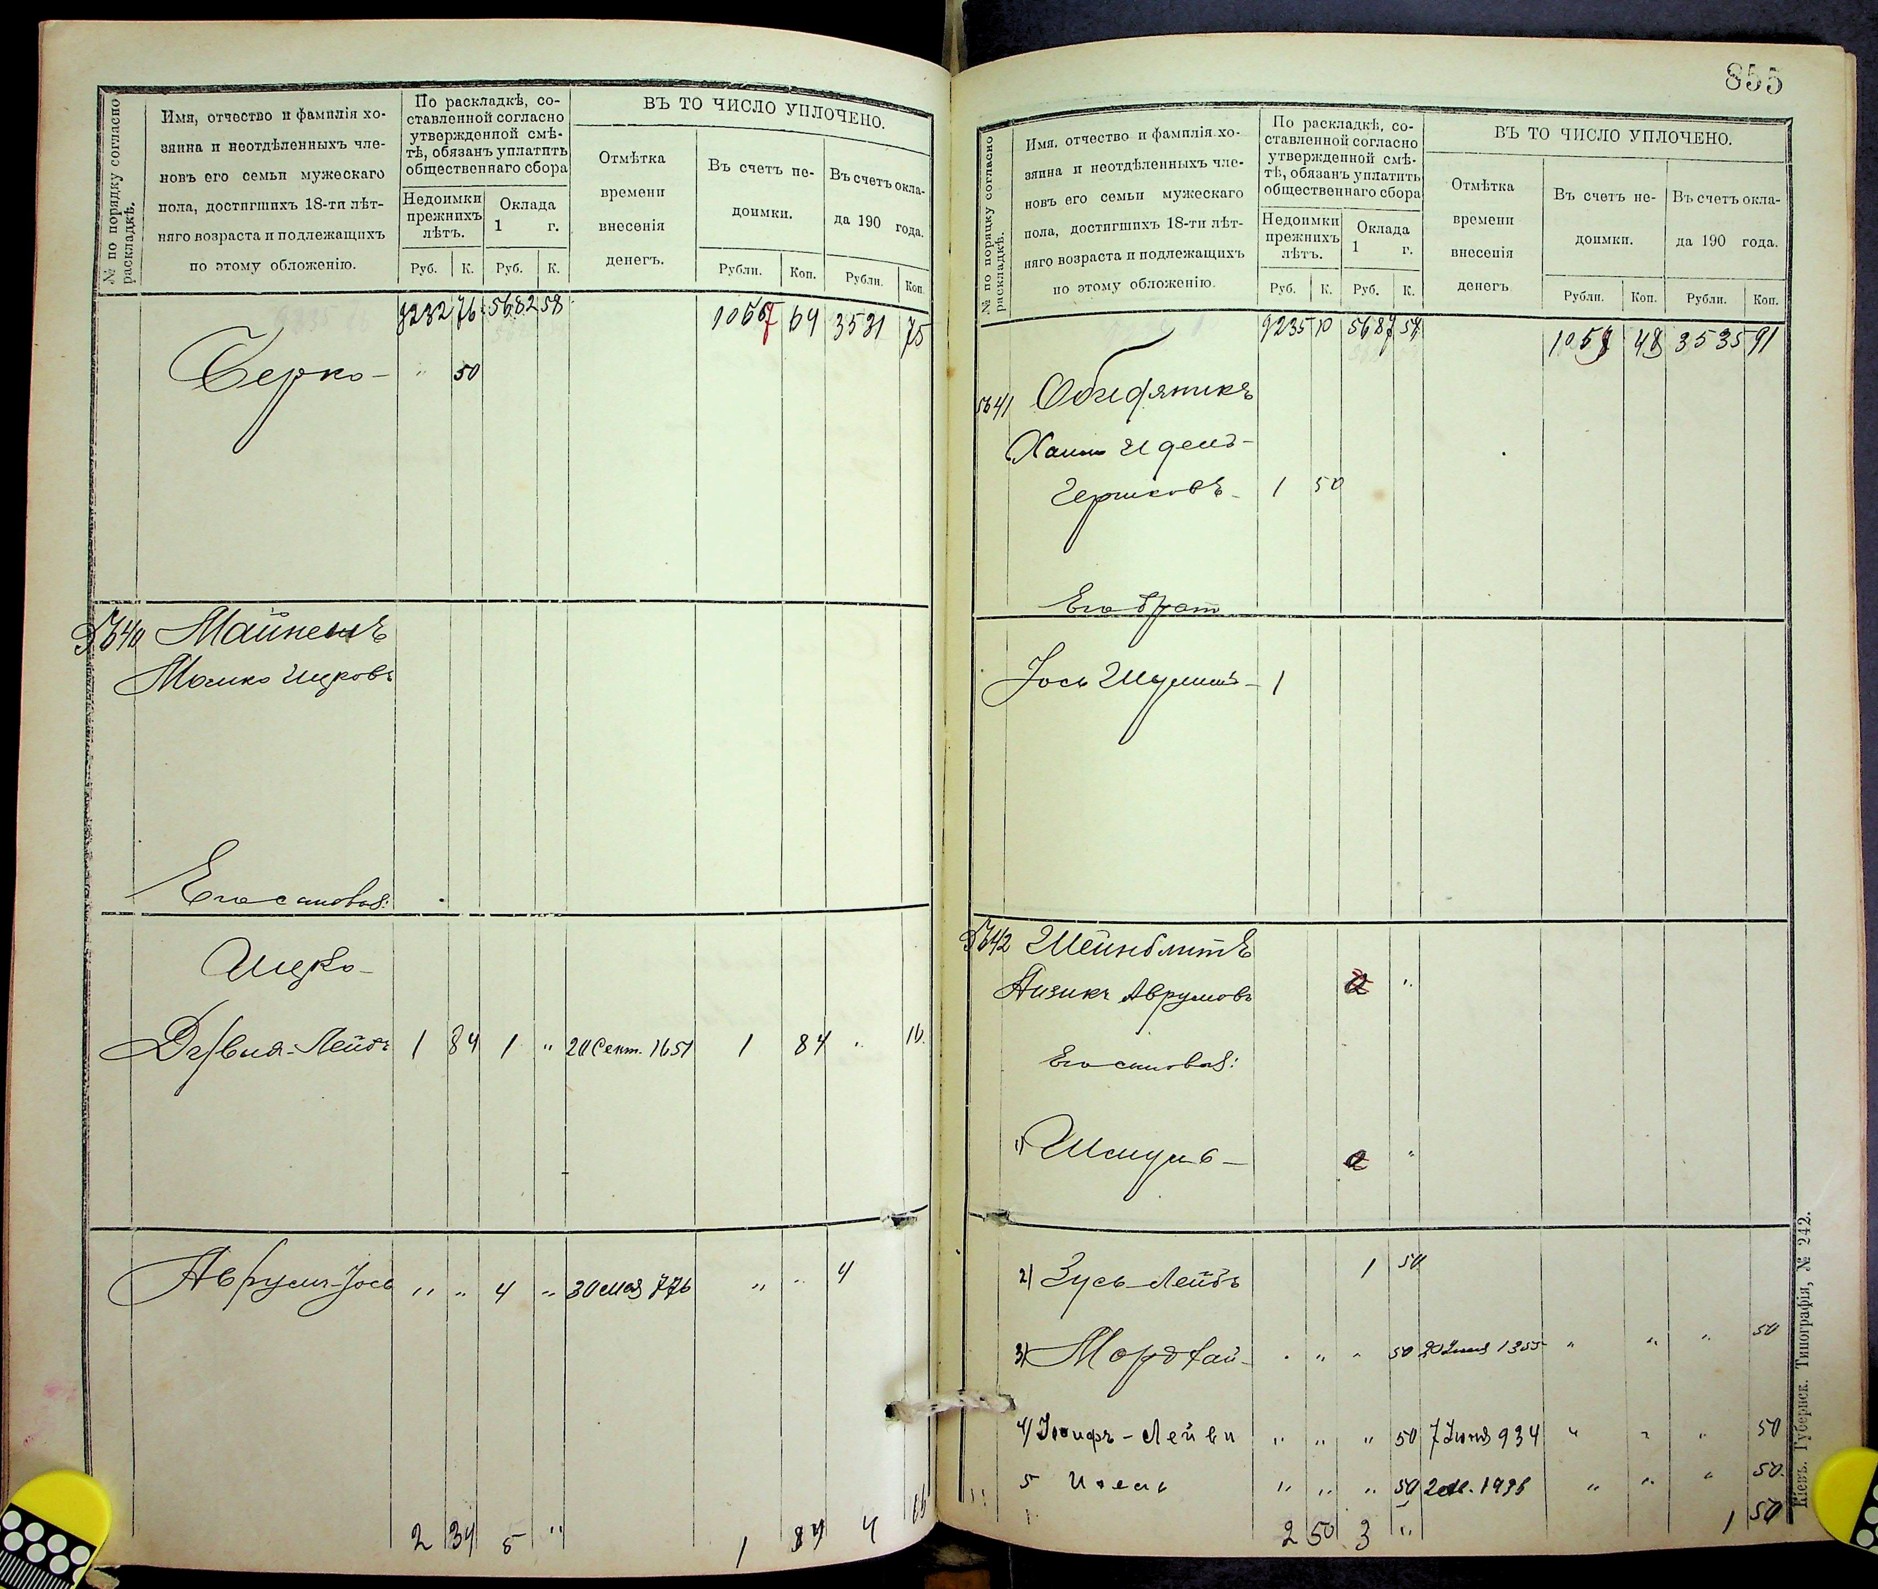 № по порядку согласно раскладкѣ.
Имя, отчество и фамилія хо-
зяина и неотдѣленныхъ чле-
новъ его семьи мужескаго
пола, достигшихъ 18-ти лѣт-
няго возраста и подлежащихъ
по этому обложенію.
По раскладкѣ, со-
ставленной согласно
утвержденной смѣ-
тѣ, обязанъ уплатить
общественнаго сбора
Недоимки
прежнихъ
лѣтъ.
Оклада
1 г.
Руб. К. Руб. К.
ВЪ ТО ЧИСЛО УПЛОЧЕНО.
Отмѣтка
времени
внесенія
денегъ.
Въ счетъ не-
доимки.
Въ счетъ окла-
да 190 года.
Рубли. Коп. Рубли. Коп.
9232 76 5682 58 69 3531 75
Берко - " 50
5640
Мошко Ицковъ
Его сыновья:
Ицко -
-Лейбъ 1 84 1 " 20 Сент. 1651 1 84 " 16
Аврумъ-Іось " " 4 " 30 мая 776 " " 4
2 34 5 " 1 84 4 16
855
№ по порядку согласно раскладкѣ.
Имя, отчество и фамилія хо-
зяина и неотдѣленныхъ чле-
новъ его семьи мужескаго
пола, достигшихъ 18-ти лѣт-
няго возраста и подлежащихъ
по этому обложенію.
По раскладкѣ, со-
ставленной согласно
утвержденной смѣ-
тѣ, обязанъ уплатить
общественнаго сбора
Недоимки
прежнихъ
лѣтъ.
Оклада
1 г.
Руб. К. Руб. К.
ВЪ ТО ЧИСЛО УПЛОЧЕНО.
Отмѣтка
времени
внесенія
денегъ
Въ счетъ не-
доимки.
Въ счетъ окла-
да 190 года.
Рубли. Коп. Рубли. Коп.
9235 10 5687 58 48 3535 91
5641
Гершковъ - 1 50
Его братъ
Іось Шулимъ - 1
5642 Шейнблитъ
Айзикъ Аврумовъ
Его сыновья:
1) Шмуль -
2) Зусь-Лейбъ 1 50
3) Мордхай - " " " 50 1355 " " " 50
4) Іосифъ-Лейви " " " 50 7 Іюня 934 " " " 50
5 " " " 50 " " " 50
2 50 3 " 1 50
Кіевъ. Губернск. Типографія, № 242.